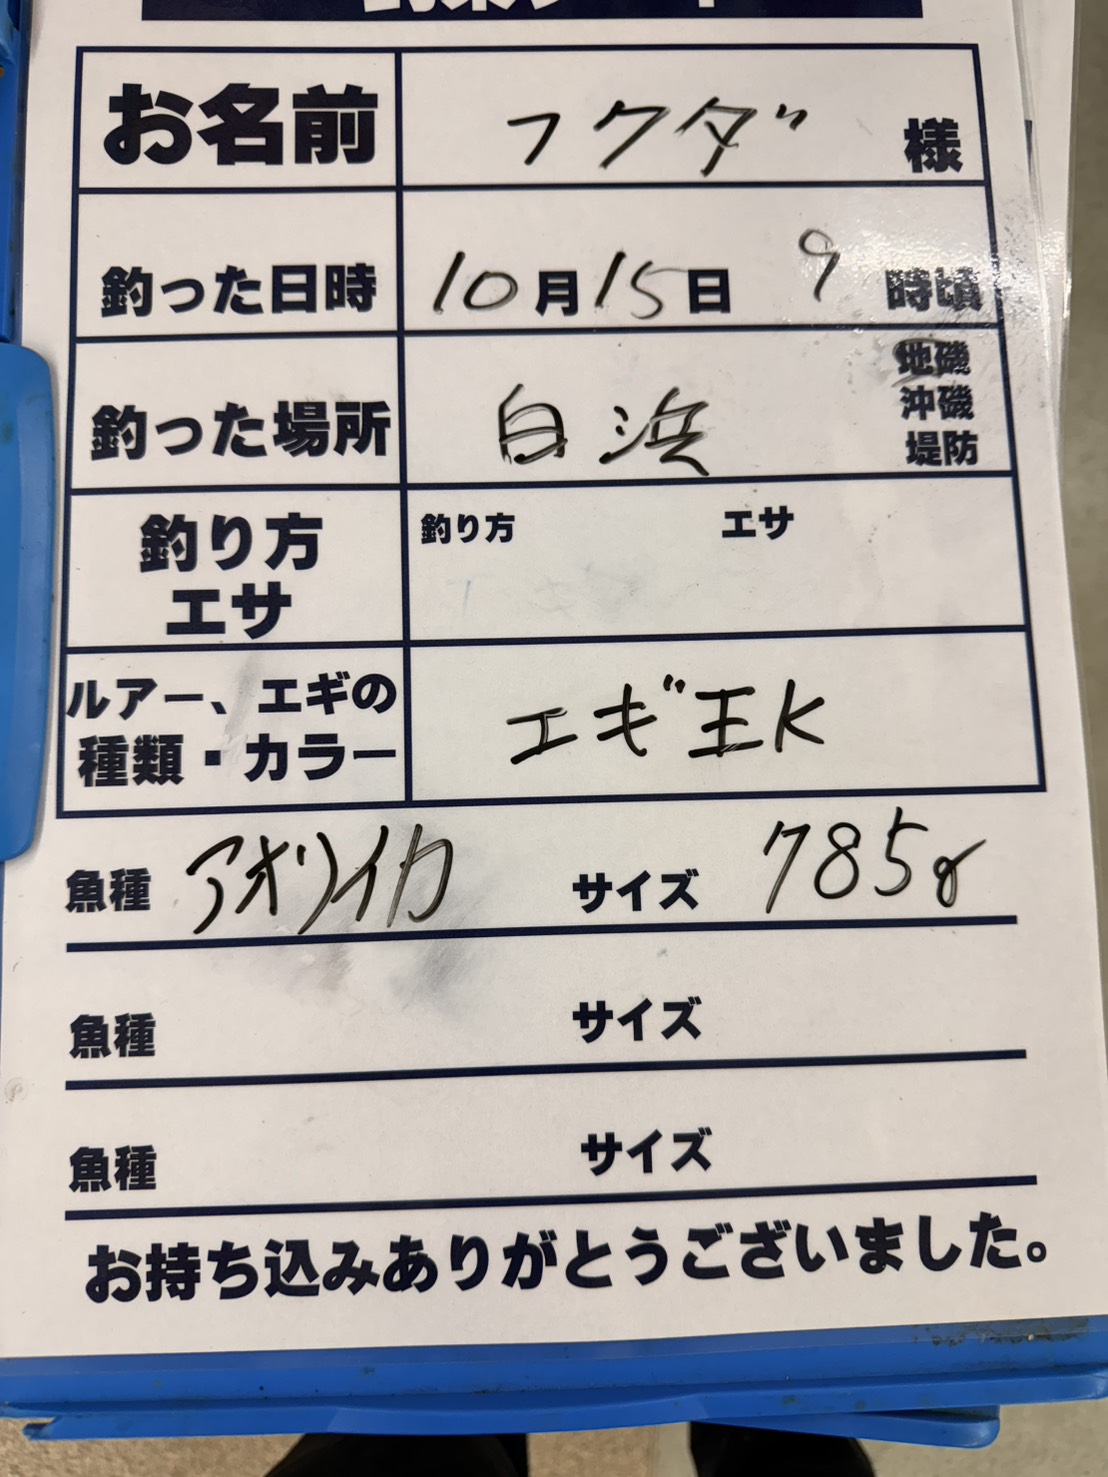 お名前 フクダ 様
釣った日時 10月15日 9時頃
釣った場所 白浜 地磯
沖磯
堤防
釣り方
エサ
釣り方 エサ
ルアー、エギの
種類・カラー
エギ王K
魚種 アオリイカ サイズ 785g
魚種 サイズ
魚種 サイズ
お持ち込みありがとうございました。